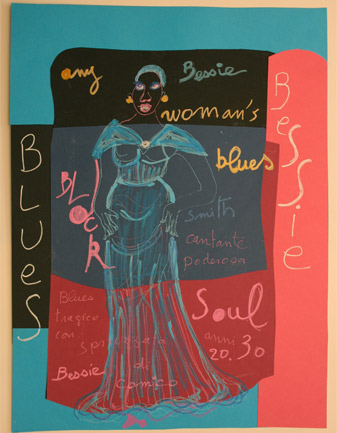 any
Bessie
woman's
blues
BLUES
BESSiE
BLACK
smith
cantante
poderosa
Soul
anni
20.30
Blues
tragico
con
sprazzata
di
Bessie
comico